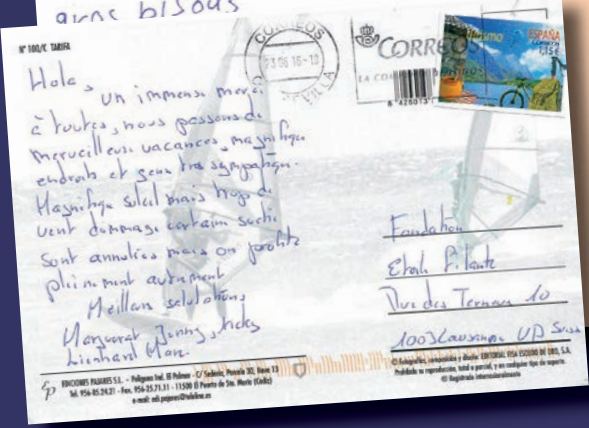 gros bisous
Nº 100/C TARIFA
Hola,
un immense merci
à toutes, nous passons de
merveilleuse vacances, magnifique
endroits et gens très sympathique.
Magnifique soleil mais trop de
vent dommage certain sortie
sont annulées mais on profite
pleinement autrement
Meilleurs salutations
Marguerat Jenny,
Lienhard Marc.
CORREOS
23 06 16-10
SEVILLA
CORREOS
turismo
ESPAÑA
CORREOS
1,15 €
Fondation
Etoile Filante
Rue des Terreaux 10
1003 Lausanne VD Suisse
EDICIONES PAJARES S.L. - Polígono Ind. El Palmar - C/ Sedería, Parcela 30, Nave 13
Tel. 956-85.24.21 - Fax. 956-25.71.11 - 11500 El Puerto de Sta. María (Cádiz)
e-mail: edi.pajares@teleline.es
© Fotografías, composición y diseño: EDITORIAL FISA ESCUDO DE ORO, S.A.
Prohibida su reproducción, total o parcial, y en cualquier tipo de soporte.
© Registrado internacionalmente